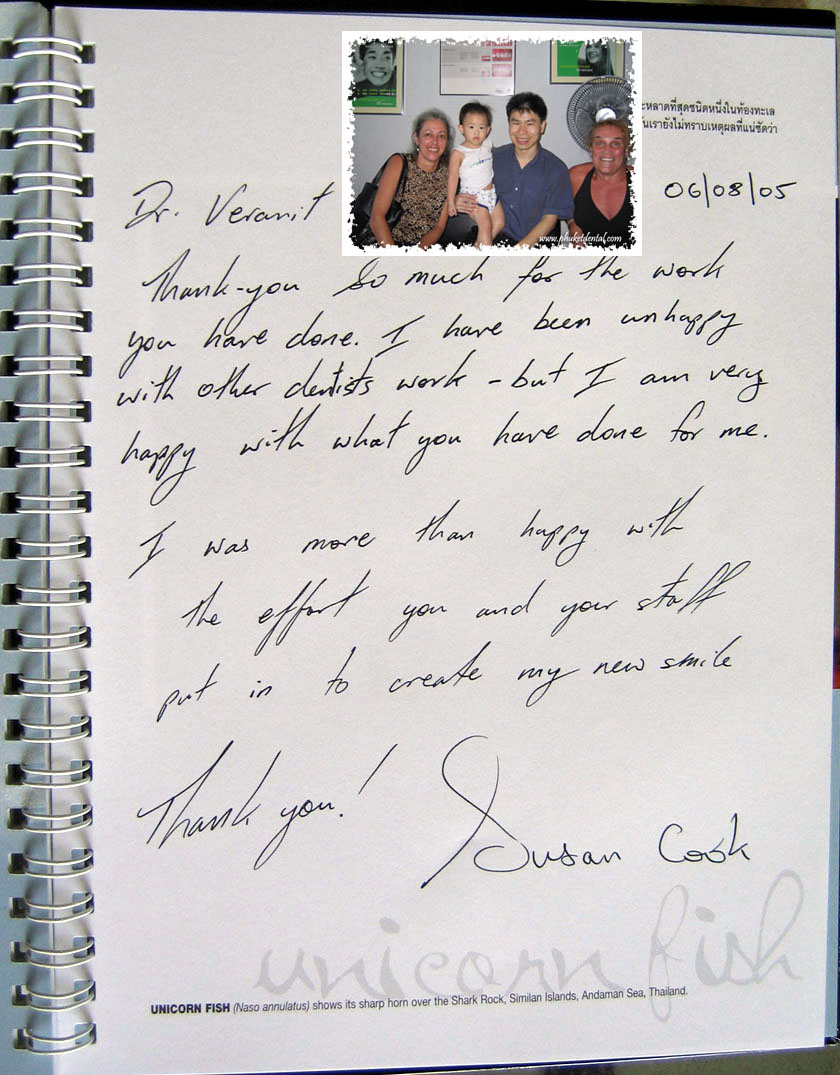 ะหลาดที่สุดชนิดหนึ่งในท้องทะเล
นเรายังไม่ทราบเหตุผลที่แน่ชัดว่า
www.phuketdental.com
Dr. Veranit 06/08/05
Thank-you so much for the work
you have done. I have been unhappy
with other dentists work - but I am very
happy with what you have done for me.
I was more than happy with
the effort you and your staff
put in to create my new smile
Thank you!
Susan Cook
unicorn fish
UNICORN FISH (Naso annulatus) shows its sharp horn over the Shark Rock, Similan Islands, Andaman Sea, Thailand.